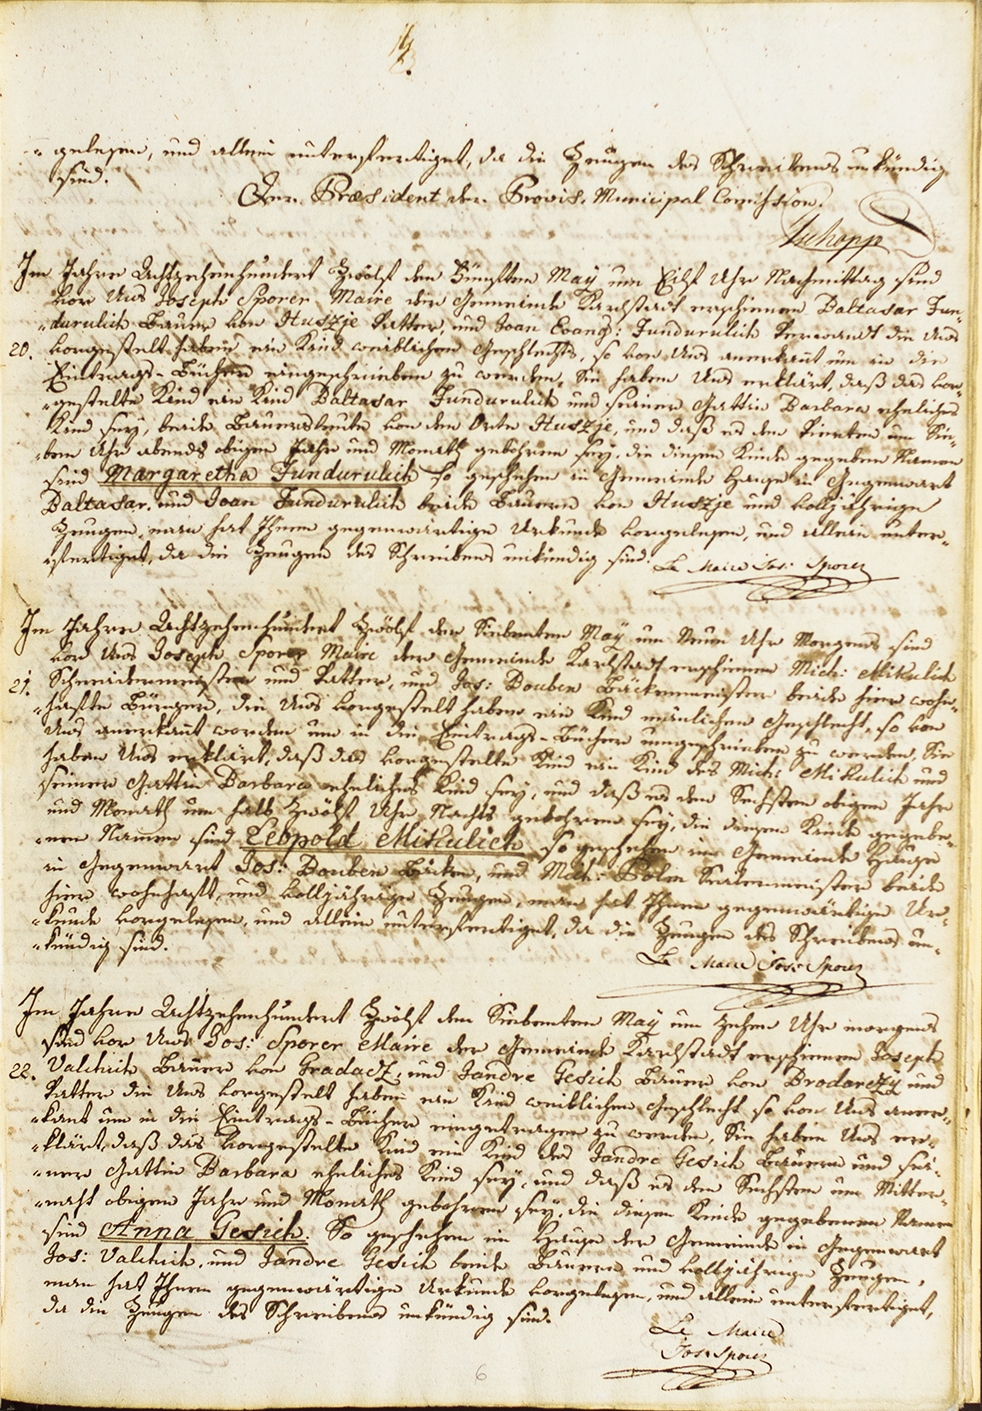 gelesen, und allein unterfertiget, da die Zeugen des Schreibens unkündig
sind.
Der Præsident der Provis. Municipal Comission.
Im Jahre Achtzehenhundert Zwölf den Fünften May um Eilf Uhr Nachmittag sind
vor Uns Joseph Sporer Maire der Gemeinde Karlstadt erschienen Baltasar Fun-
-durulich Bauer von Huszje Vatter, und Joan Evang: Fundurulich Verwandt die Uns
20. vorgestelt haben ein Kind weiblichen Geschlechts, so von Uns anerkant um in die
Eintrags-Bücher eingeschrieben zu werden, Sie haben Uns erklärt, daß das vor-
-gestelte Kind ein Kind Baltasar Fundurulich und seiner Gattin Barbara eheliches
Kind sey, beide Bauersleute von dem Orte Huszje, und daß es den Vierten um Sie-
-ben Uhr abends obigen Jahr und Monath gebohren sey, die diesem Kinde gegebene Namen
sind Margaretha Fundurulich so geschehen in Gemeinde Hause in Gegenwart
Baltasar, und Joan Fundurulich beide Bauern von Huszje und volljährige
Zeugen, man hat Ihnen gegenwärtige Urkunde vorgelesen, und allein unter-
-fertiget, da die Zeugen des Schreibens unkündig sind. Le Maire Jos: Sporer
Im Jahre Achtzehenhundert Zwölf den Siebenten May um Neun Uhr Morgens sind
vor Uns Joseph Sporer Maire der Gemeinde Karlstadt erschienen Mich: Mikulich
21. Schneidermeister und Vatter, und Jos: Douben Bäckermeister beide hier wohn-
-hafte Bürger, die Uns vorgestelt haben ein Kind mänlichen Geschlecht, so von
Uns anerkant worden um in die Eintrags-Bücher eingeschrieben zu werden, Sie
haben Uns erklärt, daß das vorgestelte Kind ein Kind des Mich: Mikulich und
seiner Gattin Barbara eheliches Kind sey, und daß es den Sechsten obigen Jahr
und Monath um halb Zwölf Uhr Nachts gebohren sey, die diesem Kinde gegebe-
-nen Namen sind Leopold Mikulich so geschehen im Gemeinde Hause
in Gegenwart Jos: Douben Bäcker, und Mich: beide
hier wohnhaft, und volljährige Zeugen, man hat Ihnen gegenwärtige Ur-
-kunde vorgelesen, und allein unterfertiget, da die Zeugen des Schreibens un-
-kündig sind.
Le Maire Jos: Sporer
Im Jahre Achtzehenhundert Zwölf den Siebenten May um Zehen Uhr morgens
sind vor Uns Jos: Sporer Maire der Gemeinde Karlstadt erschienen Joseph
22. Valchich Bauer von Gradacz, und Jandre Gesich Bauer von Brodarczy und
Vatter die Uns vorgestelt haben ein Kind weiblichen Geschlecht so von Uns aner-
-kant um in die Eintrags-Bücher eingetragen zu werden, Sie haben Uns er-
-klärt, daß das vorgestelte Kind ein Kind des Jandre Gesich Bauern und sei-
-ner Gattin Barbara eheliches Kind sey, und daß es den Sechsten um Mitter-
-nacht obigen Jahr und Monath gebohren sey, die diesem Kinde gegebenen Namen
sind Anna Gesich. So geschehen im Hause der Gemeinde in Gegenwart
Jos: Valchich, und Jandre Gesich beide Bauern und volljährige Zeugen,
man hat Ihnen gegenwärtige Urkunde vorgelesen, und allein unterfertiget,
da die Zeugen des Schreibens unkündig sind.
Le Maire
Jos: Sporer
6